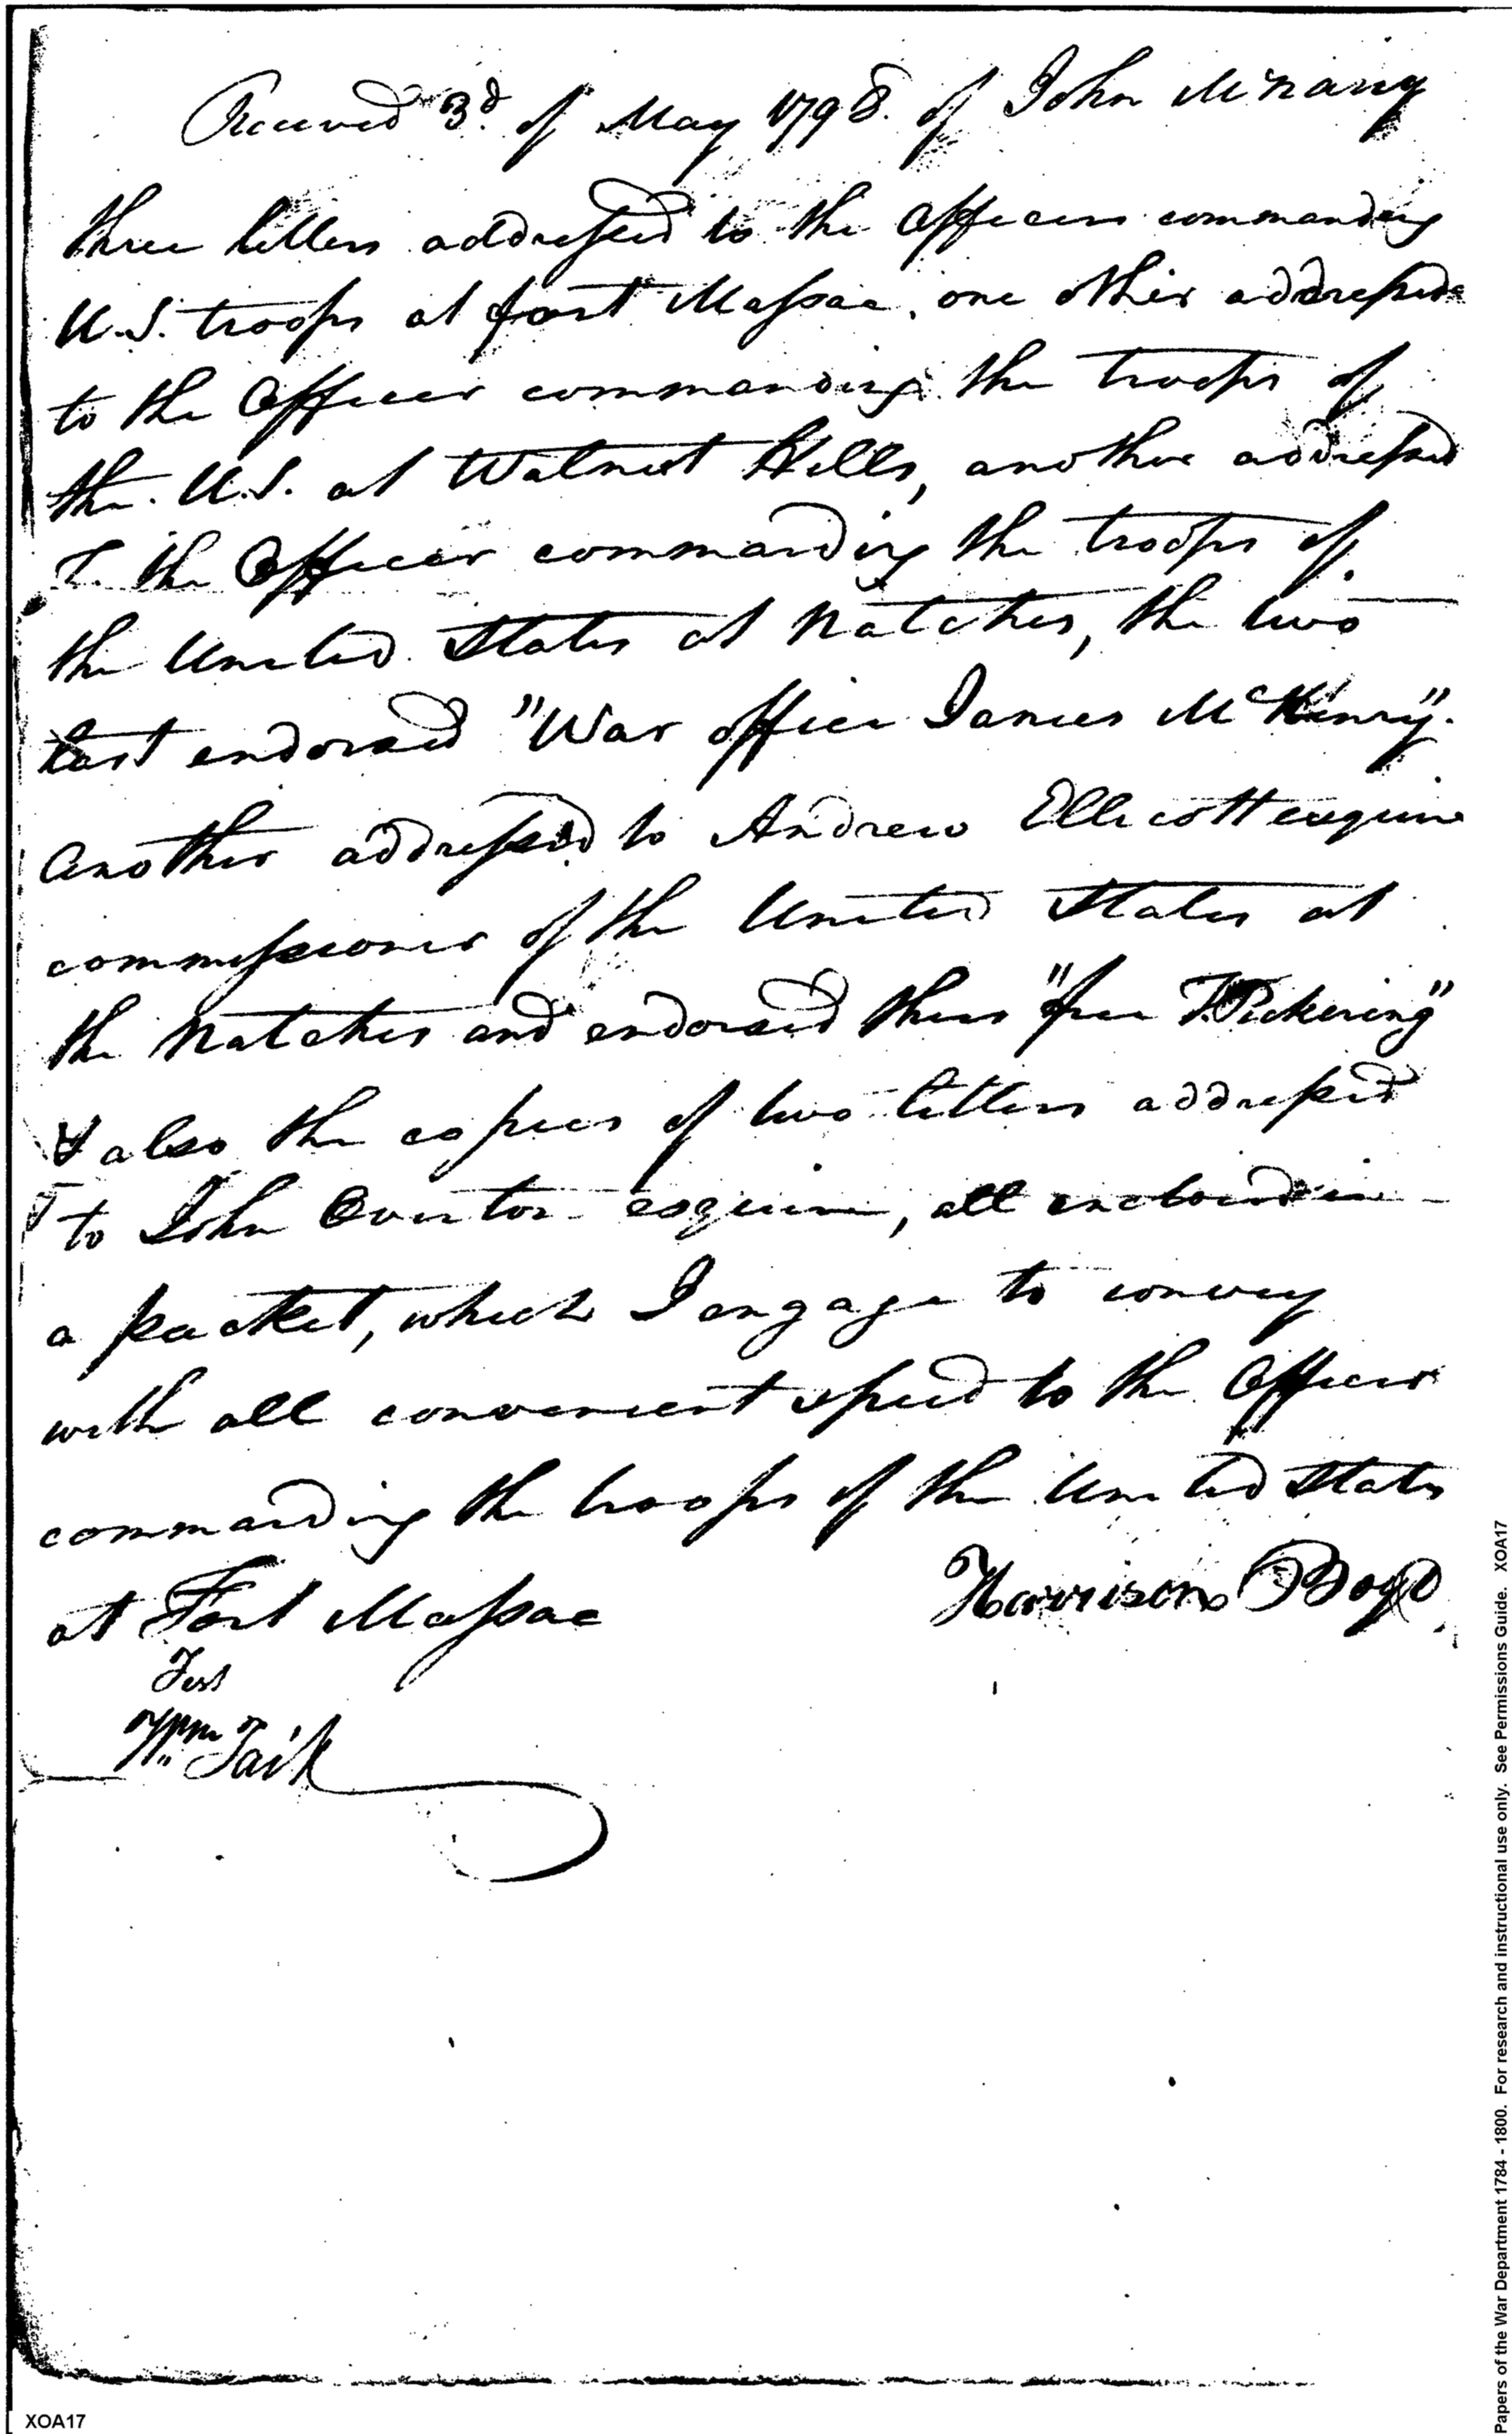 Received 3d. of May 1798. of John McNairy
three letters addressed to the Officers commanding
U.S. troops at fort Massac, one other addressed
to the Officer commanding the troops of
the U.S. at Walnut Hills, another addressed
To the Officer commanding the troops of
the United States at Natches, the two
last endorsed "War office James McHenry".
Another addressed to Andrew Ellicott esquire
commissioner of the United States at
the Natches and endorsed thus "free T. Pickering"
& also the copies of two letters addressed
to John Overton esquire, all enclosed in
a packet, which I engage to convey
with all convenient speed to the Officer
commanding the troops of the United States
at Fort Massac
Harrison Boyd
Test
Wm. Tait
XOA17
Papers of the War Department 1784 - 1800. For research and instructional use only. See Permissions Guide. XOA17